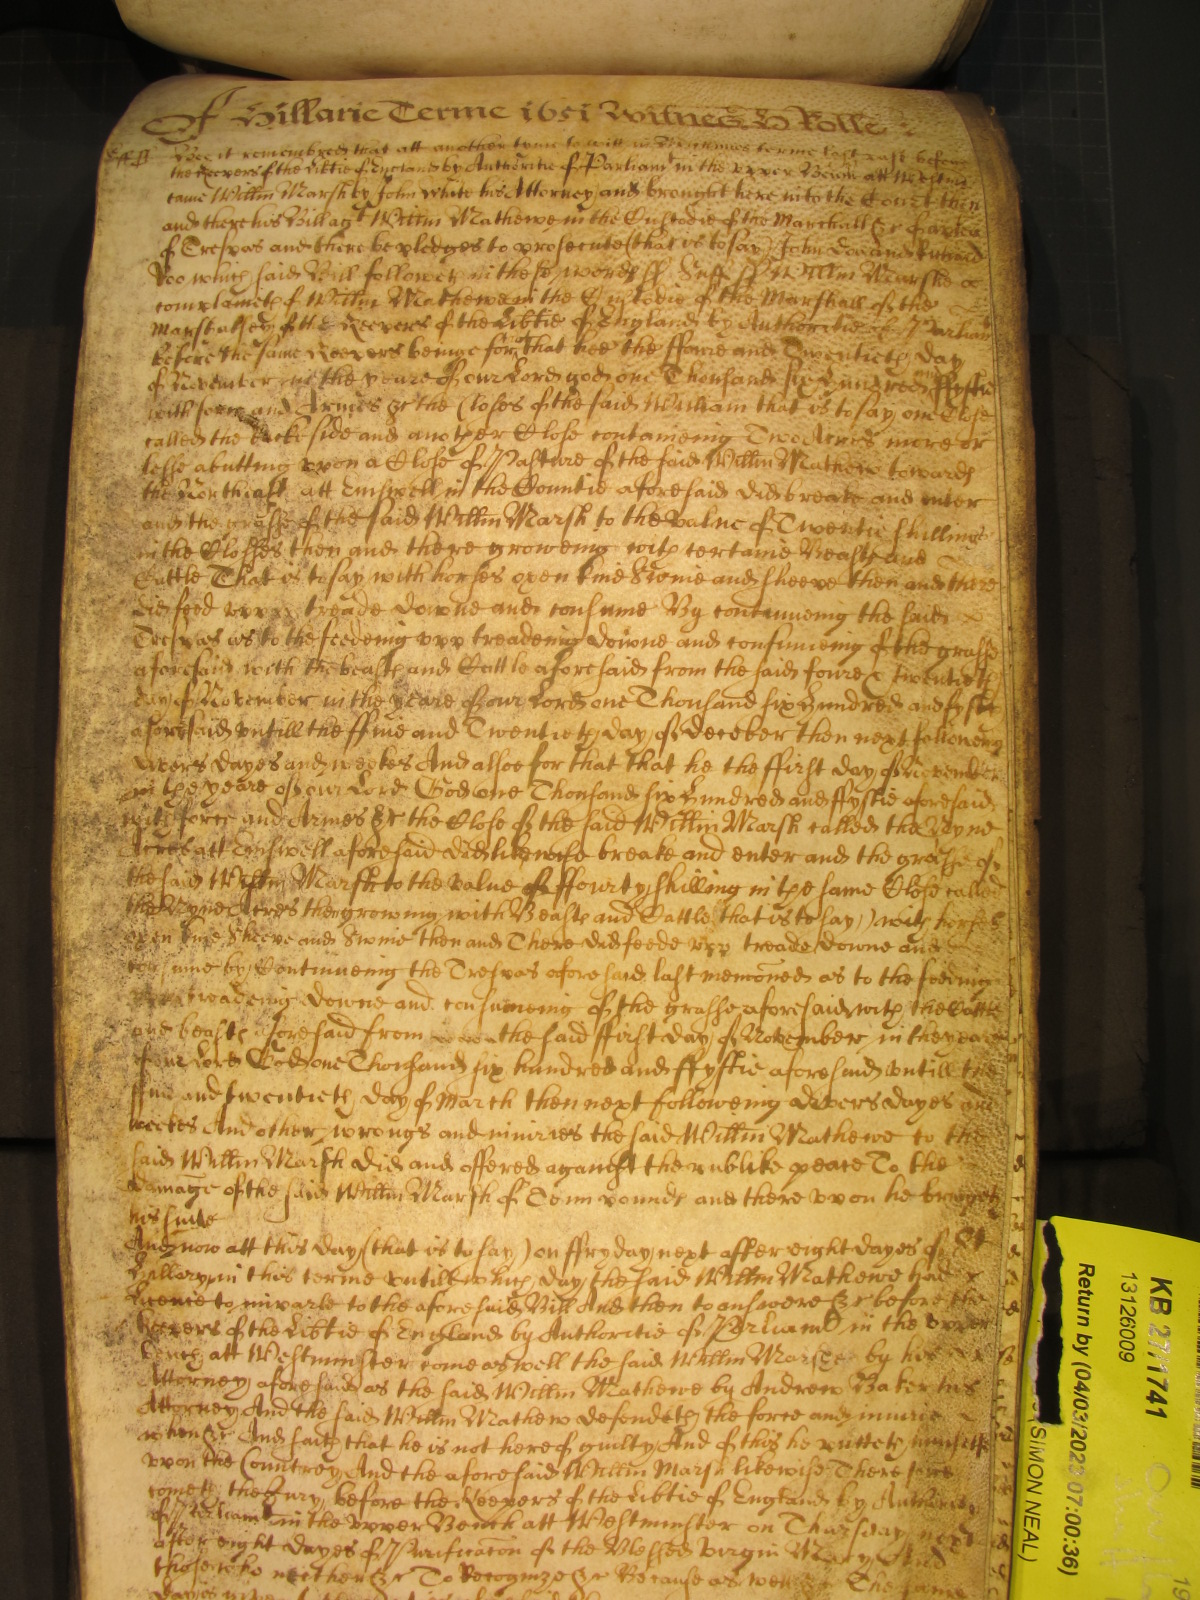 Of Hillarie Terme 1651 Witnes H Rolle
Suff ss Bee it remembred that att another tyme to witt in Michaelmas terme last past before
the keepers of the Libtie of England by Authoritie of Parliamt in the upper Bench att Westmr
came Willm Marsh by John White his Attorney and brought here into the Court then
and there his Bill agt Willm Mathewe in the Custodie of the Marshall &c of a plea
of Trespas and there be pledges to prosecute (that is to say) John Doe and Richard
Roo which said Bill followeth in these words ss Suff ss Willm Marshe
complaineth of Willm Mathewe in the Custodie of the Marshall of the
Marshalsey of the Keepers of the Libtie of England by Authoritie of Parliamt
before the same Keepers beinge for That hee the ffoure and Twentieth day
of November in the yeare of our Lord god one Thousand six hundred and ffyftie
with force and Armes &c the Closes of the said William that is to say one Close
called the backside and another Close conteineing Two Acres more or
lesse abutting upon a Close of Pasture of the said Willm Mathew towards
the Northeast att Emswell in the Countie aforesaid did breake and enter
and the grasse of the said Willm Marsh to the value of Twentie shillings
in the Closses then and there groweing with certaine Beasts and
Cattle That is to say with horses oxen kine Swine and sheepe then and there
did feed upp treade downe and consume By continueing the said
Trespas as to the feedeing upp treadeing downe and consumeing of the grasse
aforesaid with the beasts and Cattle aforesaid from the said foure & twentieth
day of November in the yeare of our Lord one Thousand six hundred and fyftie
aforesaid untill the ffive and Twentieth day of December then next followeing
divers dayes and weekes And alsoe for that that he the ffirst day of November
in the yeare of our Lord God one Thousand six hundred and ffyftie aforesaid
with force and Armes &c the Close of the said Willm Marsh called the Nyne
Acres att Emswell aforesaid did likewise breake and enter and the grasse of
the said Willm Marsh to the value of ffourty shilling in the same Close called
the Nyne Acres then growing with Beasts and Cattle that is to say, with horses
oxen kine Sheepe and Swine then and There did feede upp treade downe and
consume by Continueing the Trespas aforesaid last menconed as to the feeding
upp treadeing downe and consumeing of the grasse aforesaid with the Cattle
and beasts aforesaid from the said ffirst day of November in the yeare
of our Lord God one Thousand six hundred and ffyftie aforesaid untill the
ffive and twentieth day of March then next followeing divers dayes and
weekes And other wrongs and iniuries the said Willm Mathewe to the
said Willm Marsh did and offered against the publike peace To the
damage of the said Willm Marsh of Tenn pounds and there upon he bringeth
his suite
And now att this day (that is to say) on ffryday next after eight dayes of St
Hillary in this terme untill which day the said Willm Mathewe had
licence to imparle to the aforesaid Bill And then to answere &c before the
Keepers of the Libtie of England by Authoritie of Parliamt in the upper
bench att Westminster come aswell the said Willm Marshe by his
Attorney aforesaid as the said Willm Mathewe by Andrew Baker his
Attorney And the said Willm Mathew defendeth the force and iniurie
when &c And saith that he is not hereof guilty And of this he putteth himselfe
upon the Countrey And the aforesaid Willm Marsh likewise Therefore
cometh the Jury before the Keepers of the Libtie of England by Authority
of Parliamt in the upper Bench att Westminster on Thursday next
after eight dayes of Purificacon of the blessed virgin Mary And
those who neither &c To Recognize &c Because aswell &c The same
KB 271/1741
13126009
Return by (04/03/2023 07:00:36)
SIMON NEAL)